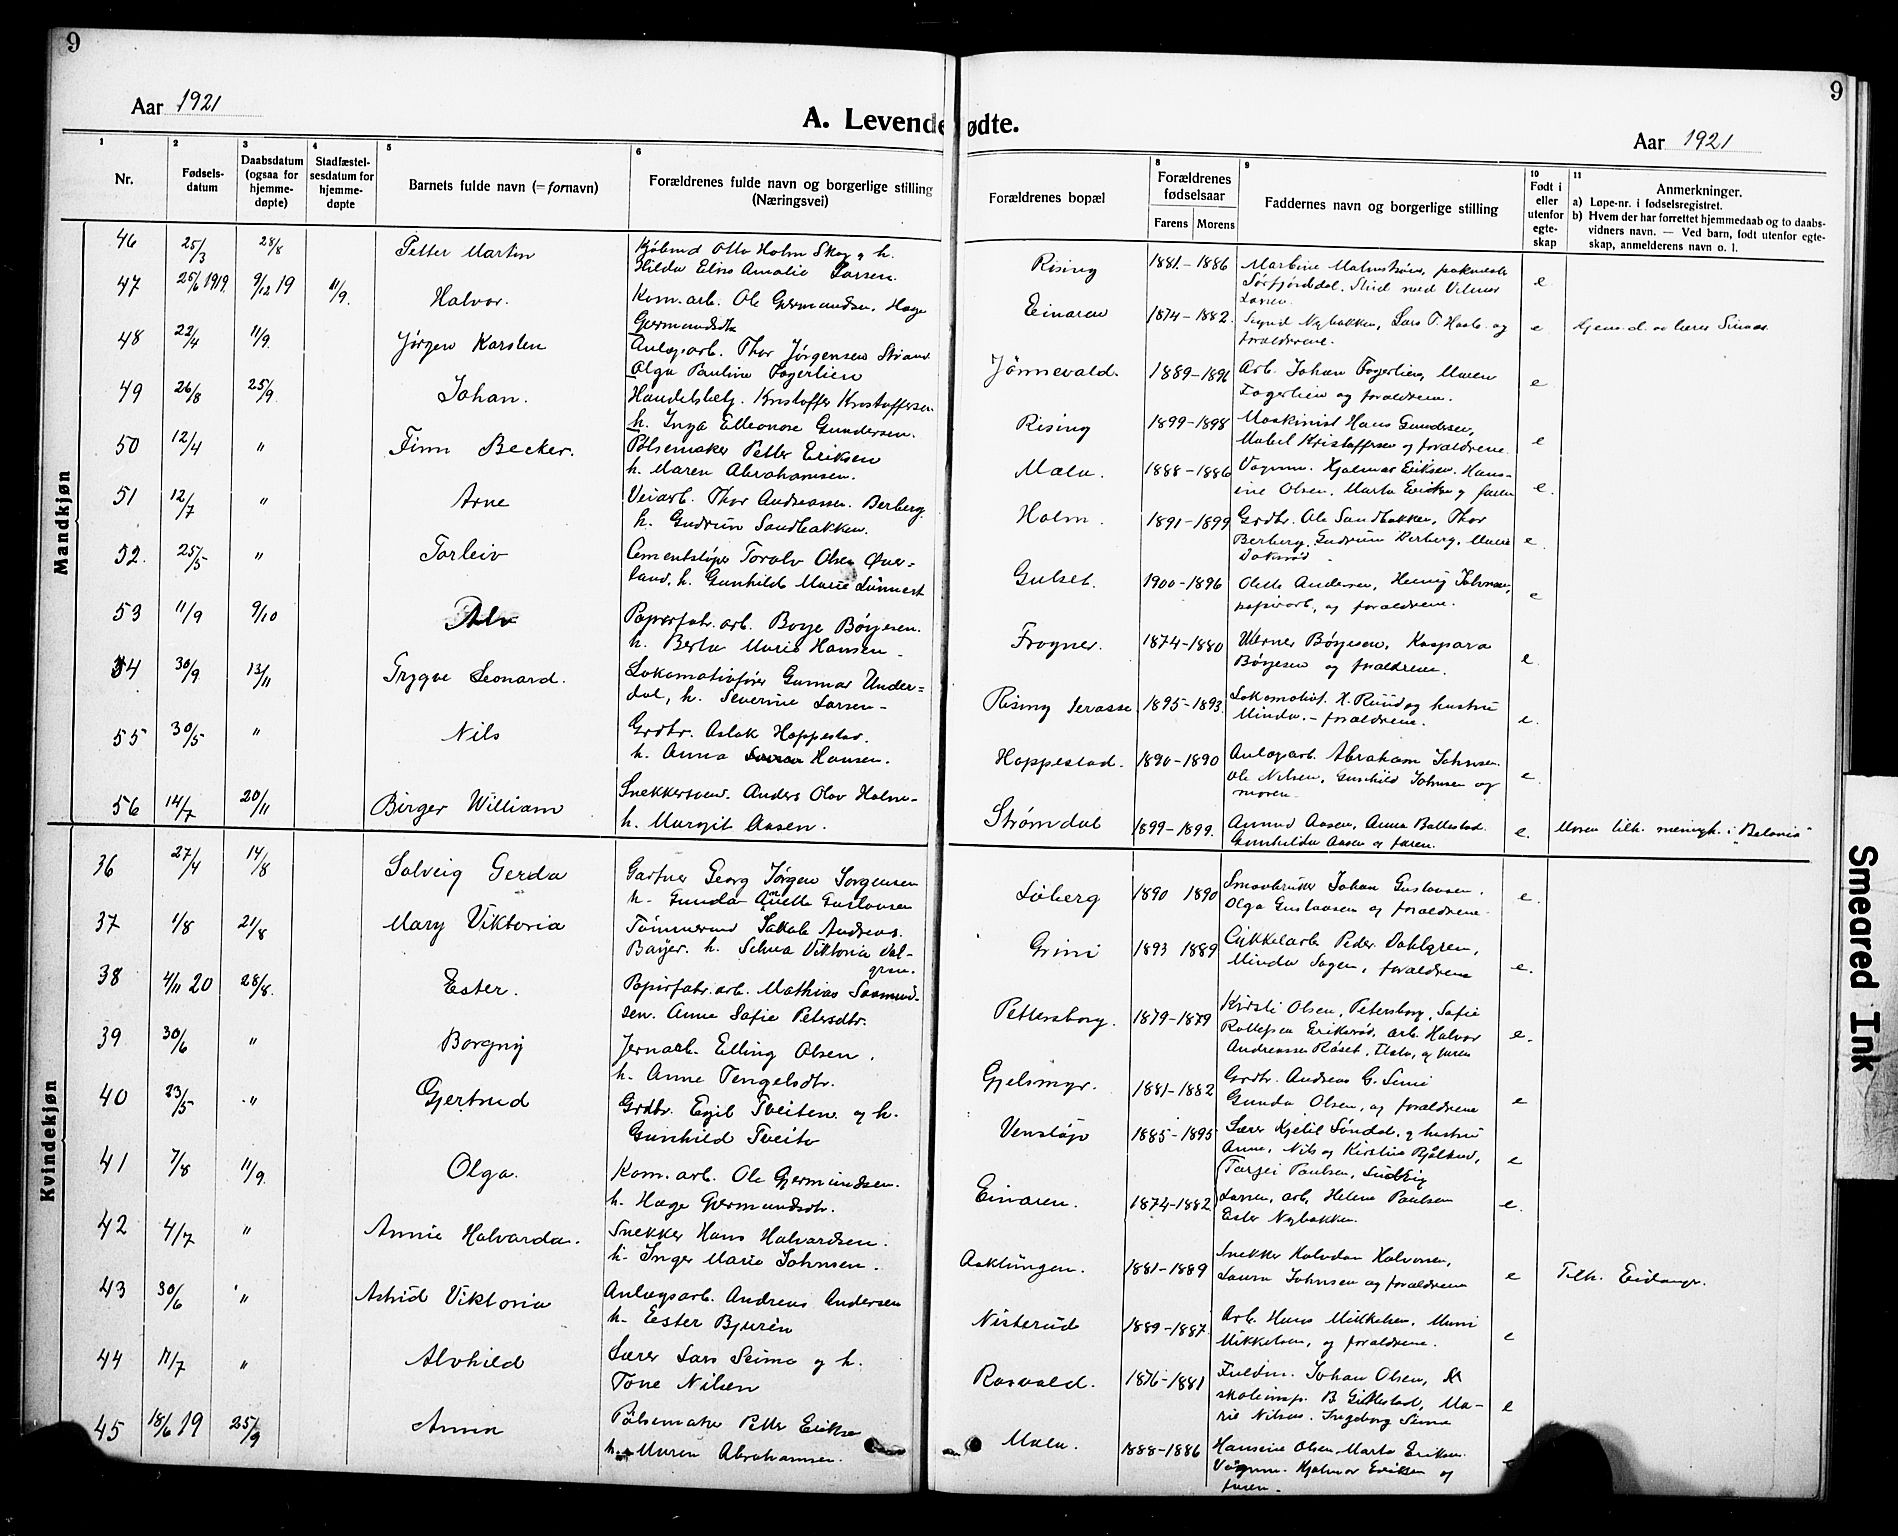 9
9
Aar 1921
A. Levende
ødte.
Aar 1921
1 2 3 4 5 6 8 9 10 11
Nr.
Fødsels-
datum
Daabsdatum
(ogsaa for
hjemme-
døpte)
Stadfæstel-
sesdatum for
hjemme-
døpte
Barnets fulde navn (= fornavn)
Forældrenes fulde navn og borgerlige stilling
(Næringsvei)
Forældrenes bopæl
Forældrenes
fødselsaar
Farens Morens
Faddernes navn og borgerlige stilling
Født i
eller
utenfor
egte-
skap
Anmerkninger.
a) Løpe-nr. i fødselsregistret.
b) Hvem der har forrettet hjemmedaab og to daabs-
vidners navn. — Ved barn, født utenfor egte-
skap, anmelderens navn o. l.
Mandkjøn
46 25/3 28/8 Petter Martin
Otto Holm Skog h.
Hilda Elise Amalie Larsen
Rising 1881-1886 Martine Malmstrøm,
Sørfjorddal. Stud med Vilmer
Larsen. e
47 25/6 1919. 9/12 19 11/9. Halvor.
Kom. arb. Ole Gjermundsen. Hæge
Gjermundsdtr
Einaren 1874-1882. Signd Nybakken, Lars T. Haab. og
forældrene. e
48 22/4 11/9. Jørgen Karsten
Anlægsarb. Thor Jørgensen Strand
Olga Pauline Fagerlien
Jønnevald. 1889-1896 Arb. Johan Fagerlien, Maren
Fagerlien og forældrene. e
49 26/8 25/9. Johan.
Handelsbetj. Kristoffer Kristoffersen
h. Inga Elleonore Gundersen.
Rising 1899-1898 Maskinist Hans Gundersen,
Mabel Kristoffersen og forældrene. e
50 12/4 " Finn Becker.
Pølsemaker Petter Eriksen
h. Maren Abrahamsen.
Mæla. 1888-1886 Vognm. Hjalmar Eriksen. Hans-
ine Olsen, Marta Eriksen og faren e.
51 12/7 " Arne
Veiarb. Thor Andreassen Berberg.
h. Gudrun Sandbakken.
Holm. 1891-1899 Grdbr. Ole Sandbakken, Thor
Berberg, Gudrun Berberg, Marie
e.
52. 25/5 " Torleiv
Cementstøper Toralv Olsen Øver-
land, h. Gunhild Marie Lunnest
Gulset. 1900-1896 Olette Andersen, Henry Johnsen,
papirarb., og forældrene. e
53 11/9 9/10 Alv
Papirfabr. arb. Borge Børjesen.
h. Berta Marie Hansen -
Frogner. 1874-1880 Werner Børjesen, Kaspara
Børjesen og forældrene. e.
54 30/9 13/11 Trygve Leonard.
Lokomotivfører Gunnar Under=
dal, h. Severine Larsen -
Rising Terasse 1895-1893. Lokomotivf. H. Ruud og hustru
Minda. - forældrene. e.
55 30/5 " Nils
Grdbr. Aslak Hoppestad.
h. Anna Hansen.
Hoppestad. 1890-1890 Anlægsarb. Abraham Johnsen.
Ole Nilsen, Gunhild Johnsen og
moren. e
56 14/7 20/11 Birger William
Snekkersvend. Anders Olav Holm-
h. Margit Aasen.
Strømdal 1899-1899. Anund Aasen, Anna Ballestad.
Gunhilda Aasen og faren. e. Moren tilh. menigh. i "Betania"
Kvindekjøn
36 27/4 14/8 Solveig Gerda
Gartner Georg Jørgen Jørgensen
h. Gunda Anette Gustavsen
Liberg 1890 1890 Smaabruker Johan Gustavsen.
Olga Gustavsen og forældrene. e.
37 1/8 21/8 Mary Viktoria
Tømmermd Jakob Andreas.
Bayer. h. Selma Viktoria Dal-
gren.
Grini 1893 1889 Cykkelarb Peder Dahlgren,
Minda Sagen, forældrene e.
38 4/11 20 28/8. Ester.
Papirfabr. arb. Mathias Saamund-
sen. Anne Sofie Petersdtr.
Pettersborg. 1879-1879 Kirsti Olsen, Petersborg, Sofie
Rollefsen Eriksrød, arb. Halvor
Andreassen Røset, og faren e.
39 30/6 " Borgny
Jernarb. Elling Olsen.
h. Anne Tengelsdtr.
Gjelsmyr. 1881-1882 Grdbr. Andreas C. Semi
Gunda Olsen, og forældrene e
40 23/5 " Gjertrud
Grdbr. Egil Tveiten og h.
Gunhild Tveito
Venstøp 1885-1895 Lærer Kjetil Søndal. og hustru
Anne, Nils og Kirstine e
41 7/8 11/9. Olga.
Kom. arb. Ole Gjermundsen.
h. Hæge Gjermundsdtr.
Einaren. 1874-1882 Targei Paulsen, Ludvig
Larsen, arb. Helene Paulsen
Ester Nybakken. e.
42 4/7 " Annie Halvarda.
Snekker Hans Halvardsen.
h. Inger Marie Johnsen.
Aaklungen. 1881-1889 Snekker Halvdan Halvorsen,
Laura Johnsen og forældrene e Tilh. Eidanger.
43 30/6 " Astrid Viktoria
Anlægsarb. Andreas Andersen
h. Ester Bjurèn
Nisterud 1889-1887. Arb. Hans Mikkelsen, Marri
Mikkelsen, og forældrene. e
44 11/7 " Alvhild
Lærer Lars Seima og h.
Tone Nilsen
Rasvald. 1876-1881 Fuldm. Johan Olsen,
skoleinsp. B Gillestad, Ma-
rie Nilsen. Ingeborg Seima e
45 18/6 19 25/9 Anna
Pølsemaker Petter Eriksen
h. Maren Abrahamsen.
Mæla. 1888-1886 Hansine Olsen Marta Eriksen.
Vognm. Hjalmar Eriksen og
faren.
Smeared Ink